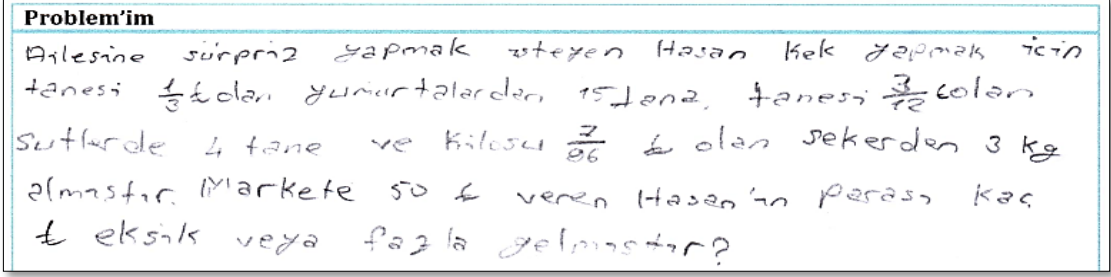 Problem'im
Ailesine sürpriz yapmak isteyen Hasan kek yapmak için
tanesi 1/3 ₺ olan yumurtalardan 15 tane, tanesi 3/12 ₺ olan
sutlerde 4 tane ve kilosu 7/96 ₺ olan sekerden 3 kg
almıstır. Markete 50 ₺ veren Hasan'ın parası kaç
₺ eksik veya fazla gelmistir?